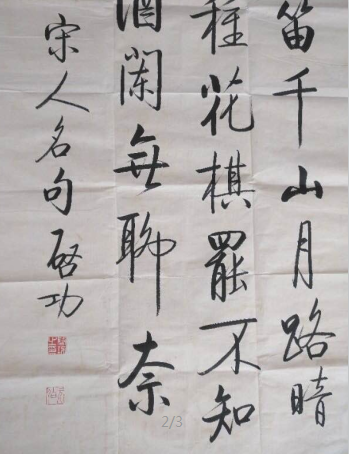 笛千山月路暗
種花棋罷不知
酒闌無聊奈
宋人名句 啓功
2/3